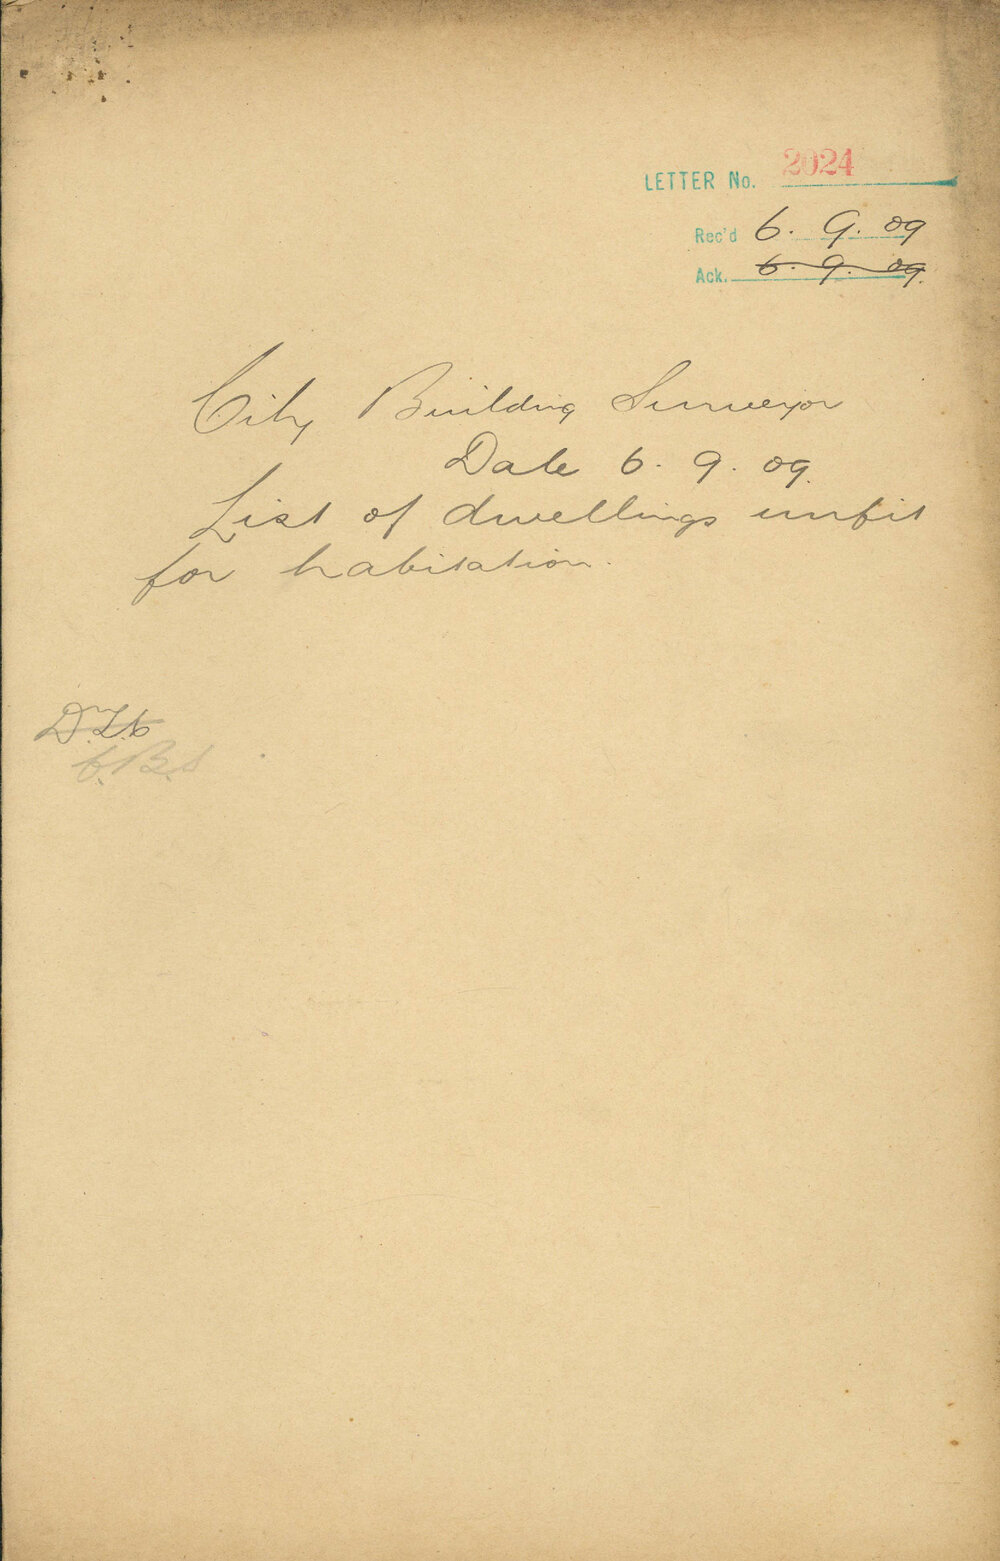 LETTER No. 2024
Rec'd 6. 9. 09
Ack. 6. 9. 09.
City Building Surveyor
Date 6. 9. 09.
List of dwellings unfit
for habitation.
C.B.S